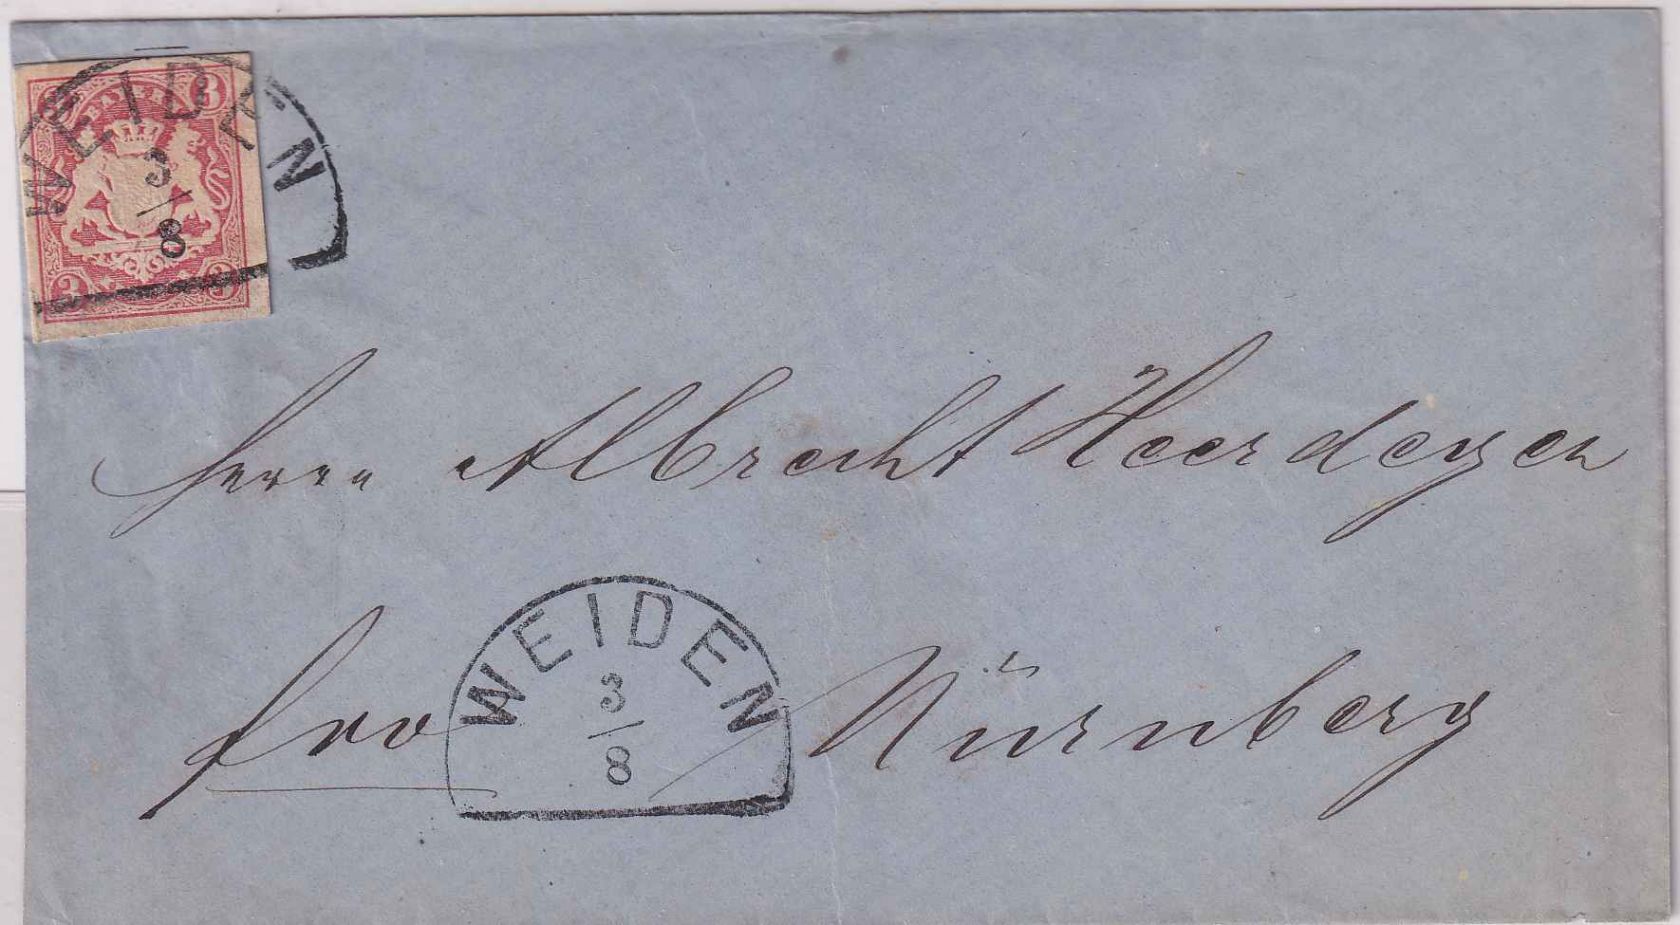 3 BAYERN 3
WEIDEN
3
8
3 3
Herrn Albrecht Heerdegen
WEIDEN
3
8
fro Nürnberg